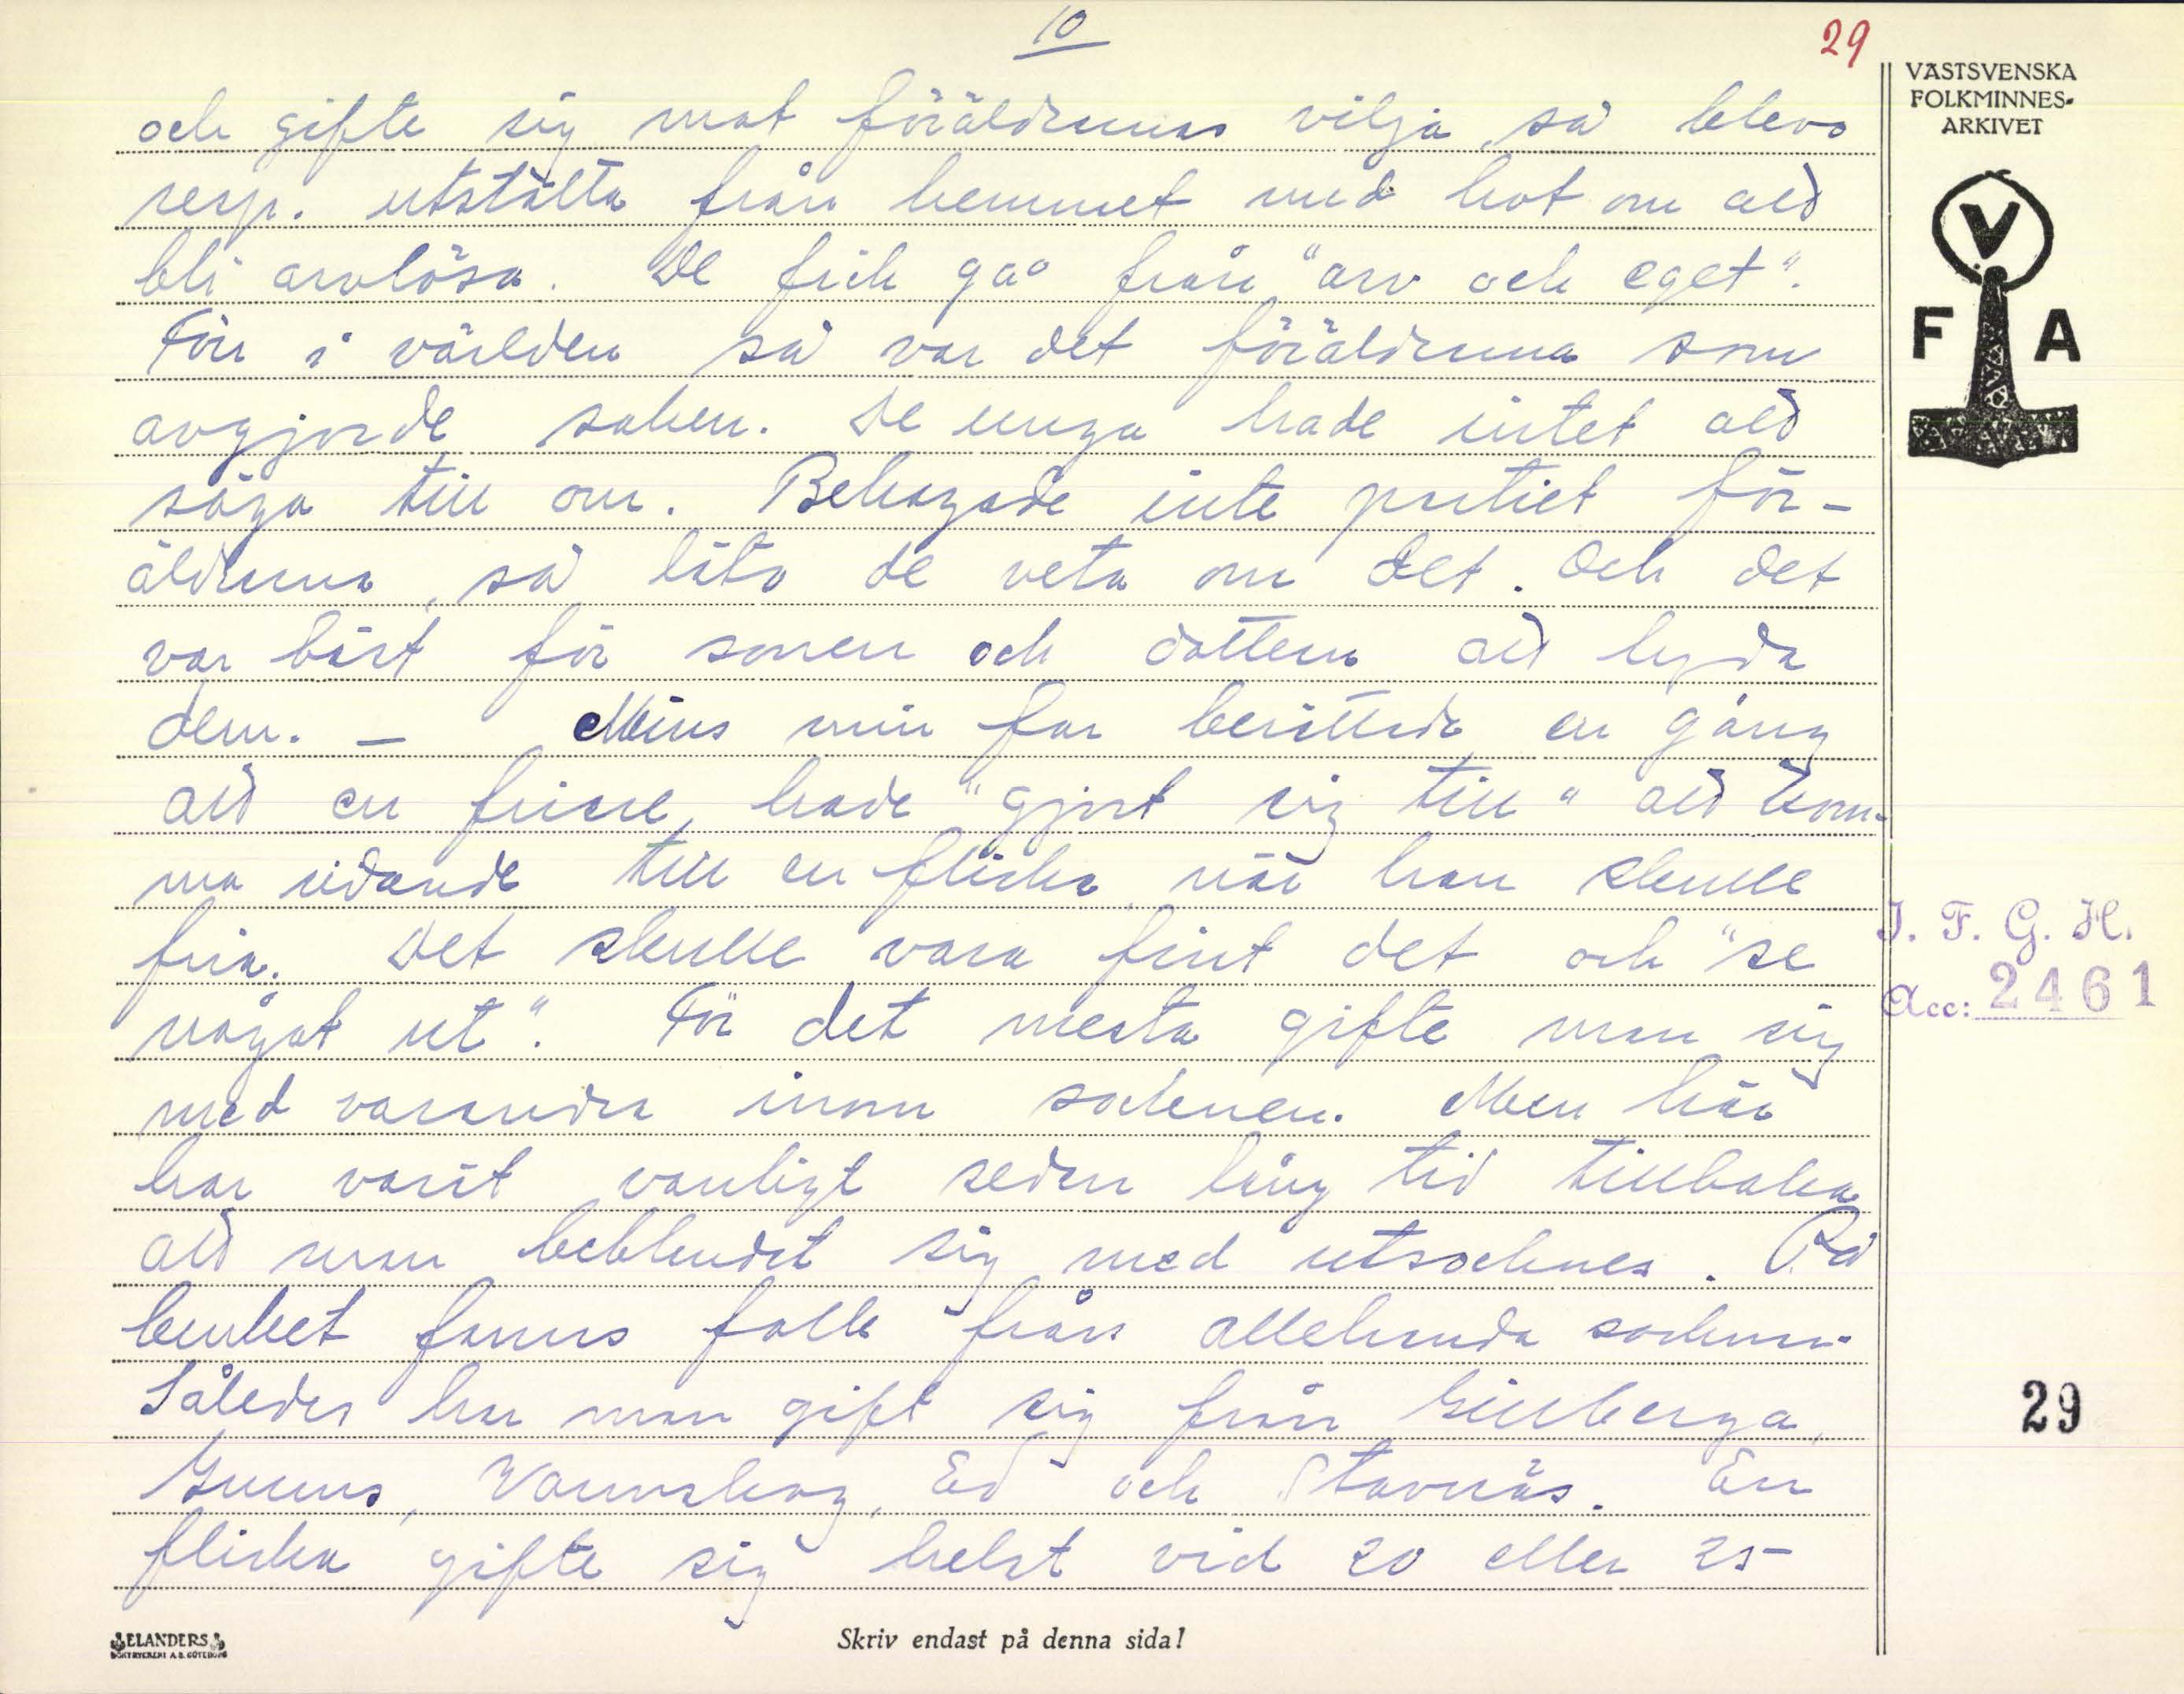 10
29
VÄSTSVENSKA
FOLKMINNES-
ARKIVET
V
F A
och gifte sig mot föräldrarnas vilja, så blevo
resp. utstälta från hemmet med hot om att
bli arvlösa. De fick gå från "arv och eget".
Förr i världen så var det föräldrarna som
avgjorde saken. De unga hade intet att
säga till om. Behagade inte partiet för-
äldrarna, så läto de veta om det. Och det
var bäst för sonen och dottern att lyda
dem. – Mins min far berättade en gång
att en friare, hade "gjort sig till" att kom-
ma ridande till en flicka när han skulle
fria. Det skulle vara fint det och "se
något ut". För det mesta gifte man sig
med varandra inom socknen. Men här
har varit vanligt sedan lång tid tillbaka
att man beblandat sig med utsocknes. På
bruket fanns folk från allehanda socknar.
Således har man gift sig från Gillberga,
Grums, Värmskog, Ed och Stavnäs. En
flicka gifte sig helst vid 20 eller 25-
I. F. G. H.
Acc: 2461
29
ELANDERS
BOKTRYCKERI A.B. GÖTEBORG
Skriv endast på denna sida!